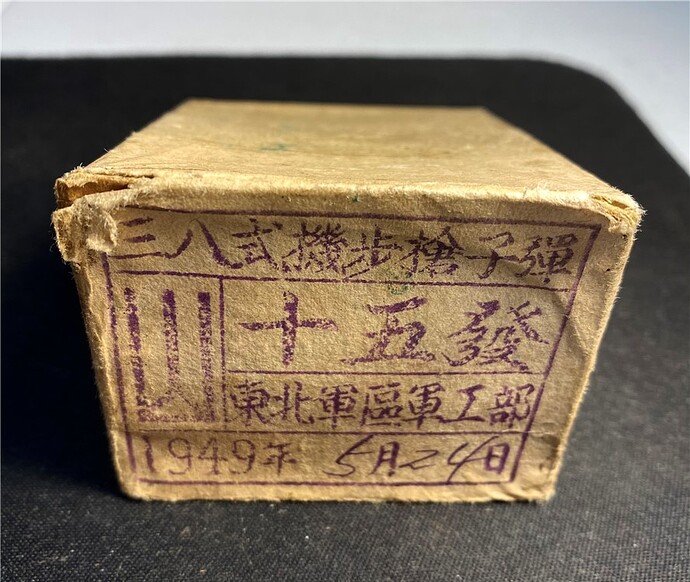 三八式機步槍子彈
十五發
東北軍區軍工部
1949年 5月24日